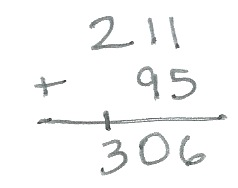 211
+ 95
1
306